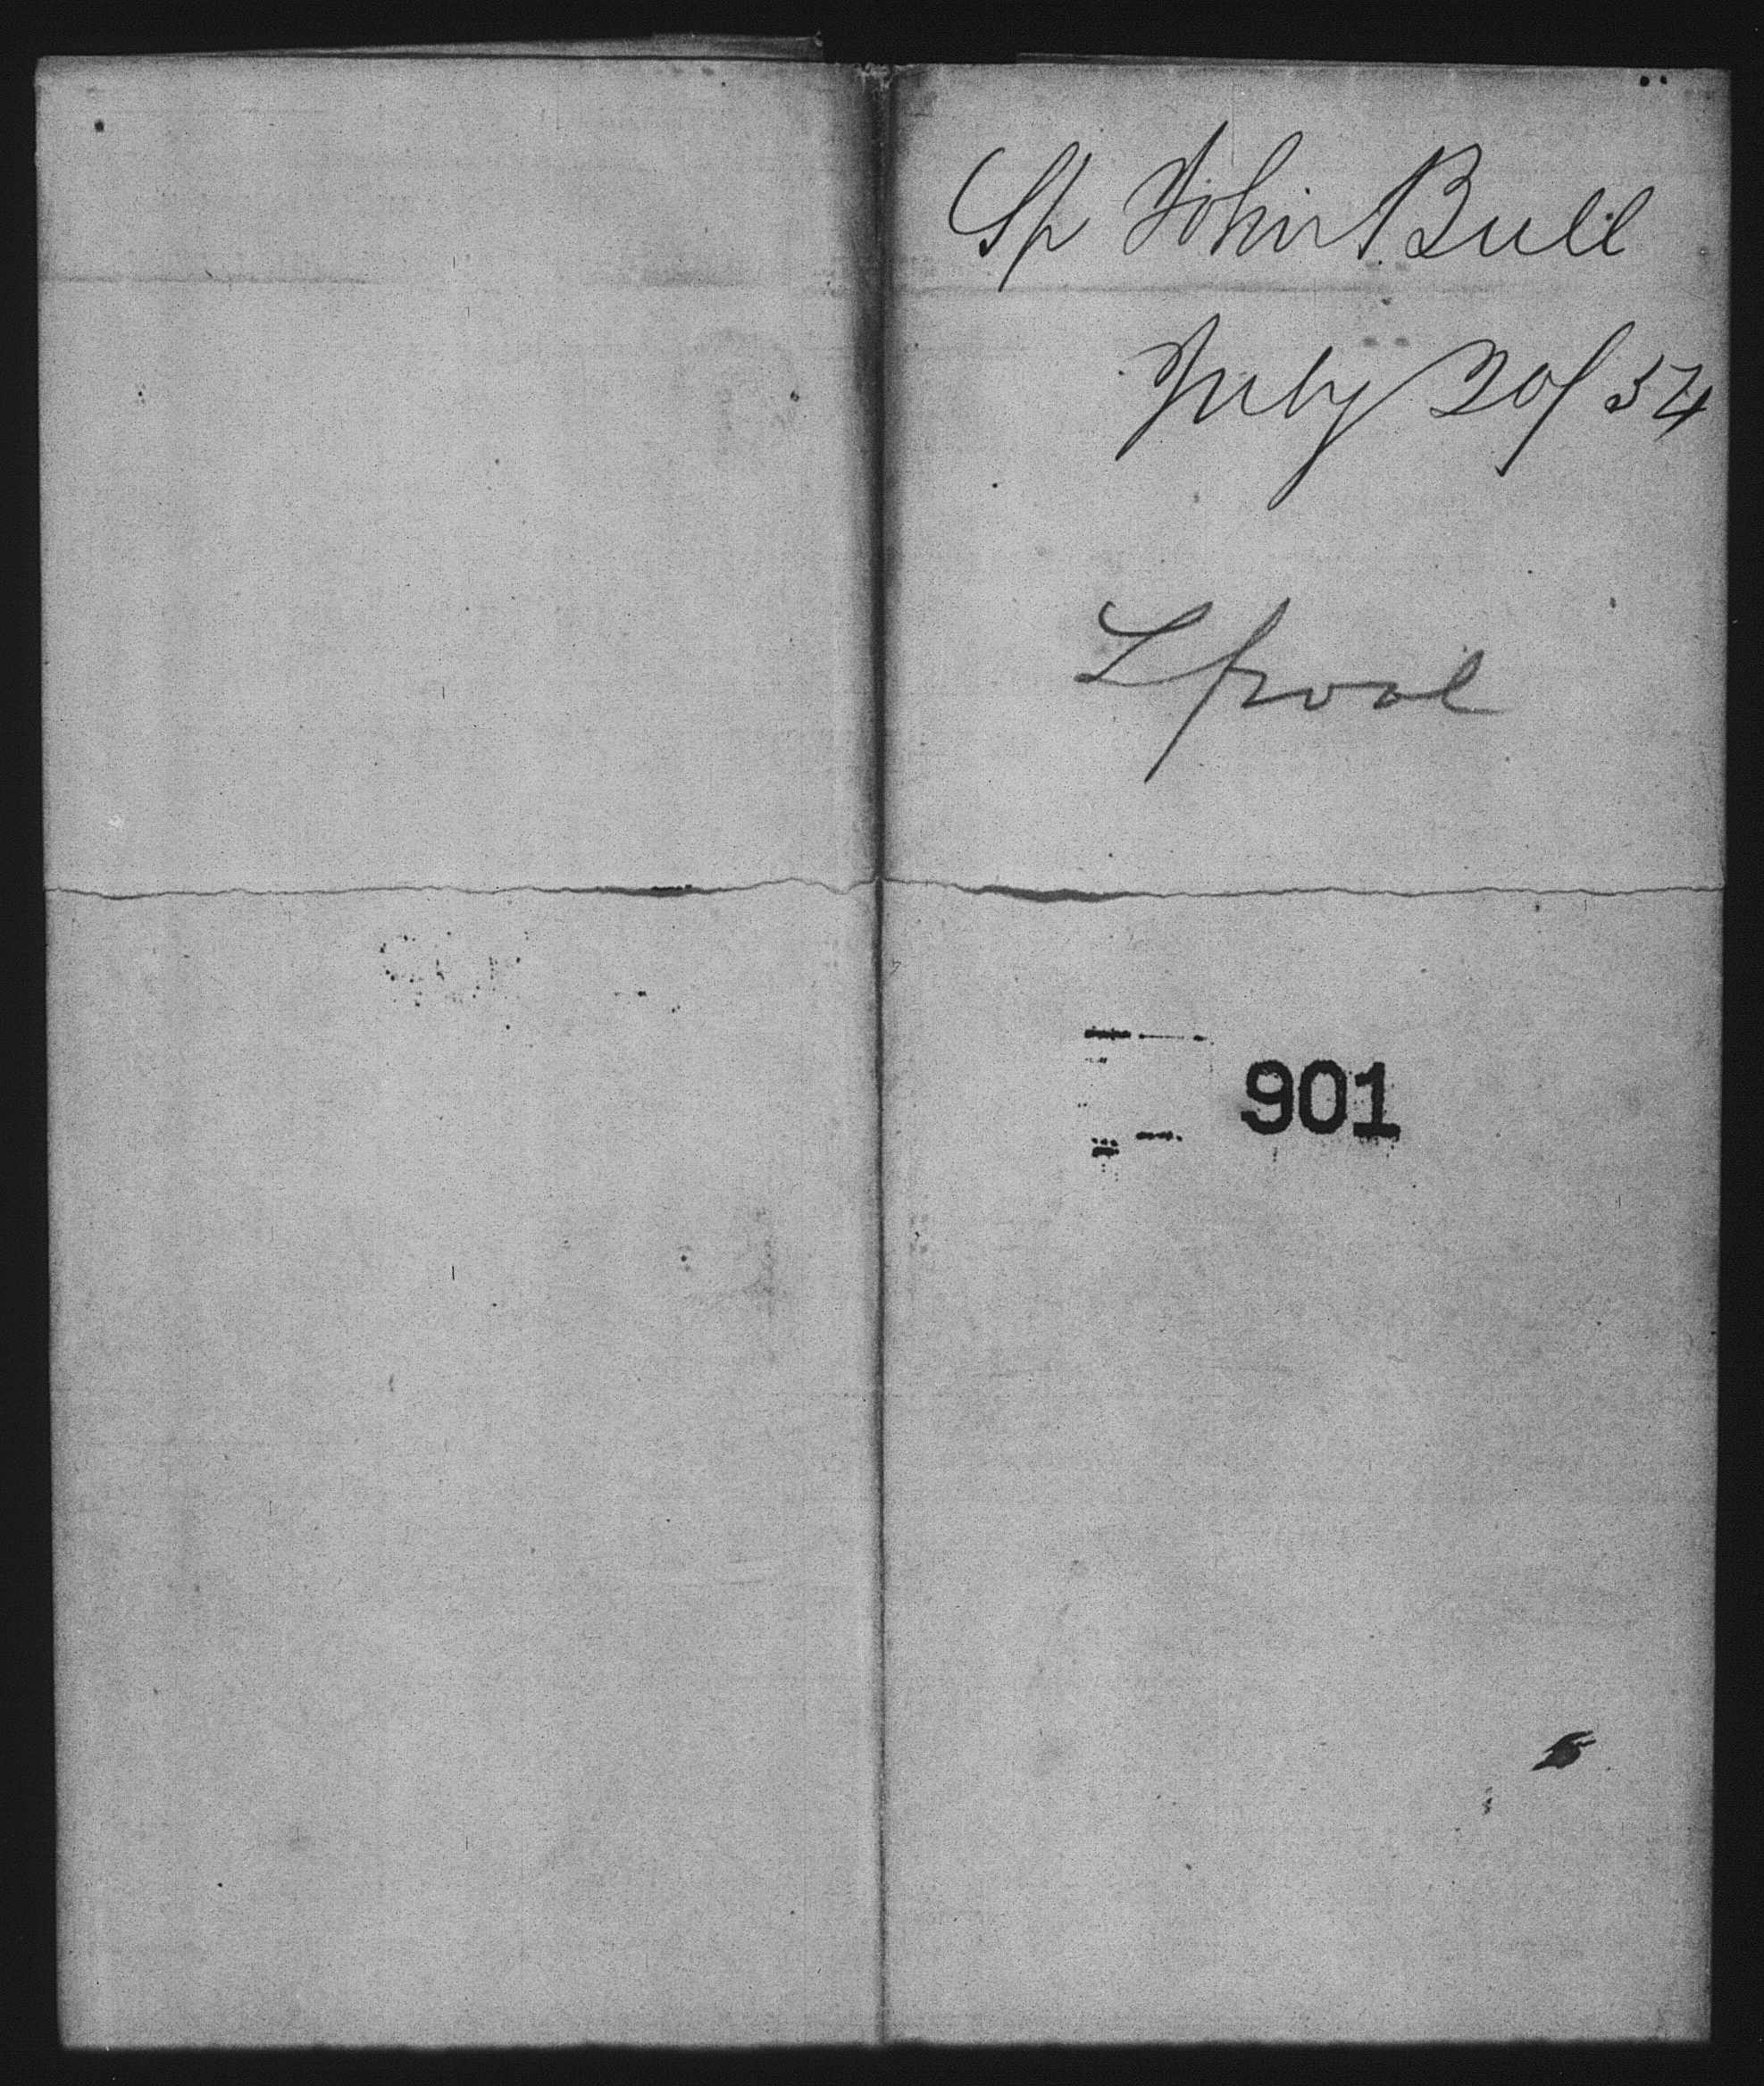 Sp John Bull
July 20/54
Lpool
901